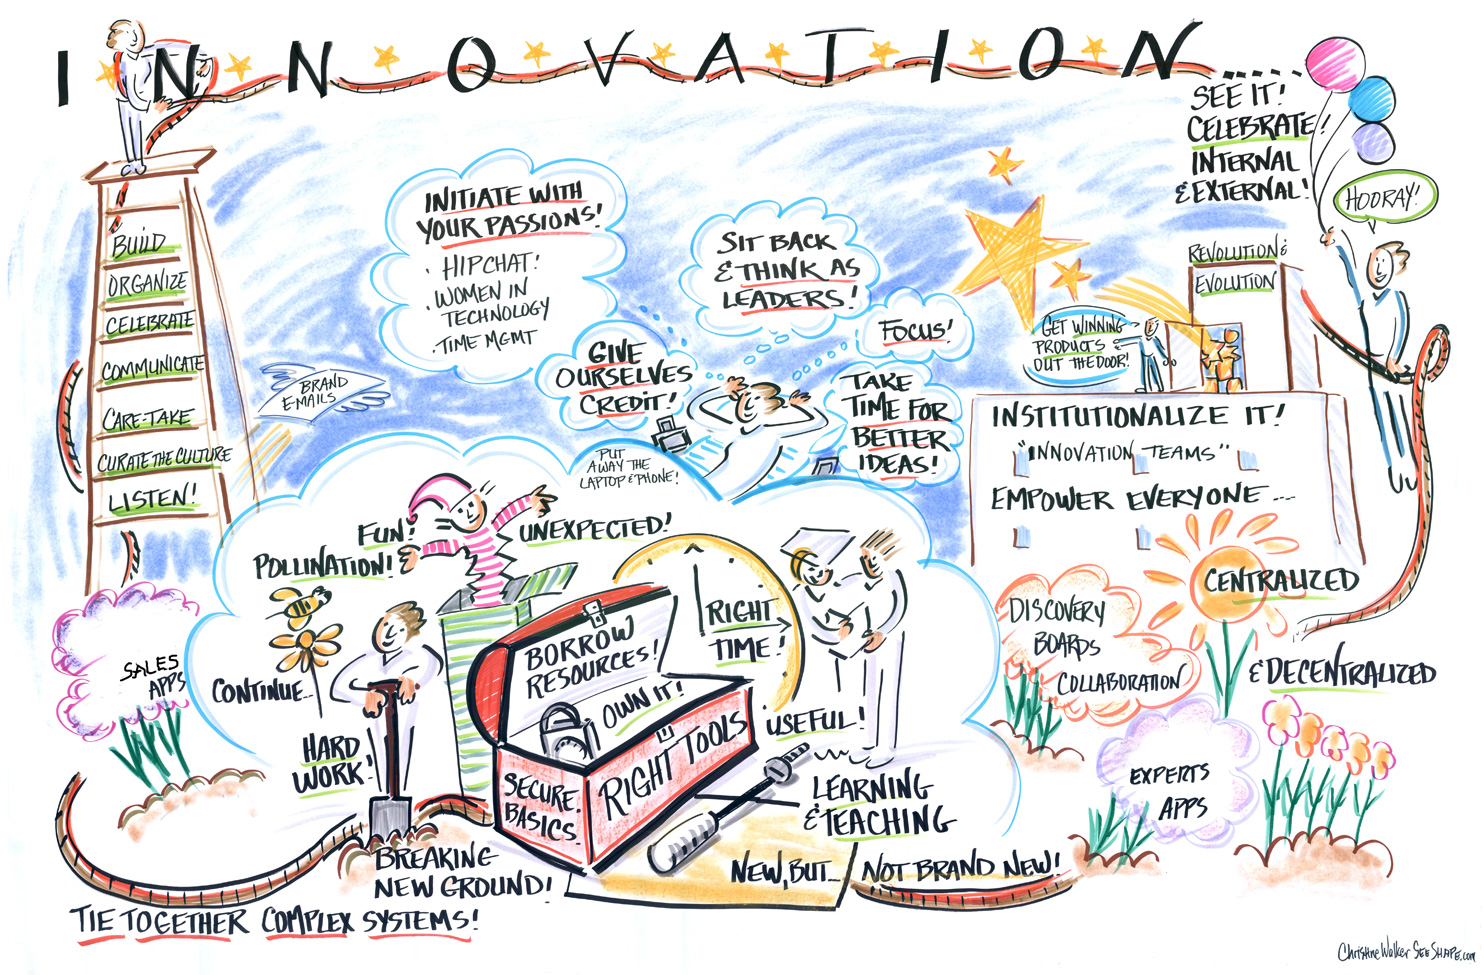 INNOVATION
SEE IT!
CELEBRATE!
INTERNAL
& EXTERNAL!
HOORAY!
BUILD
ORGANIZE
CELEBRATE
COMMUNICATE
CARE-TAKE
CURATE THE CULTURE
LISTEN!
BRAND
EMAILS
INITIATE WITH
YOUR PASSIONS!
· HIPCHAT!
· WOMEN IN
TECHNOLOGY
· TIME MGMT
SIT BACK
& THINK AS
LEADERS!
FOCUS!
GIVE
OURSELVES
CREDIT!
TAKE
TIME FOR
BETTER
IDEAS!
PUT
AWAY THE
LAPTOP & PHONE!
REVOLUTION &
EVOLUTION
GET WINNING
PRODUCTS
OUT THE DOOR!
INSTITUTIONALIZE IT!
"INNOVATION TEAMS"
EMPOWER EVERYONE...
FUN!
UNEXPECTED!
POLLINATION!
CONTINUE...
HARD
WORK!
BORROW
RESOURCES!
OWN IT!
RIGHT
TIME!
SECURE
BASICS
RIGHT TOOLS
USEFUL!
LEARNING
& TEACHING
NEW, BUT...
NOT BRAND NEW!
BREAKING
NEW GROUND!
SALES
APPS
TIE TOGETHER COMPLEX SYSTEMS!
DISCOVERY
BOARDS
COLLABORATION
CENTRALIZED
& DECENTRALIZED
EXPERTS
APPS
Christine Walker SEESHAPE.com